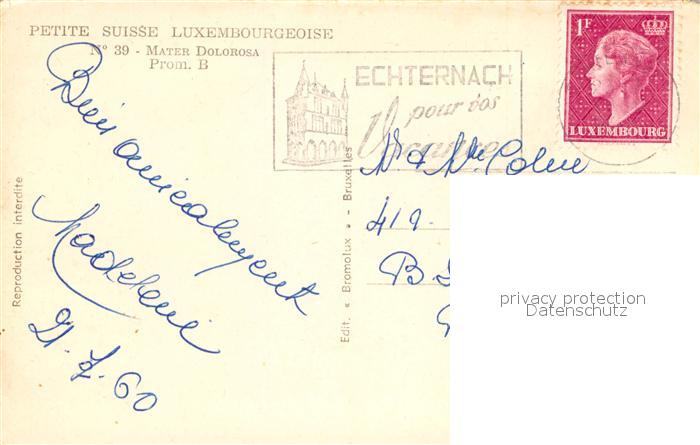 PETITE SUISSE LUXEMBOURGEOISE
N° 39 - MATER DOLOROSA
Prom. B
ECHTERNACH
pour vos
Vacances
1F
LUXEMBOURG
Bien amicalement
Madeleine
21.7.60
Mr & Me
419
B
Reproduction interdite
Edit. « Bromolux » - Bruxelles
privacy protection
Datenschutz